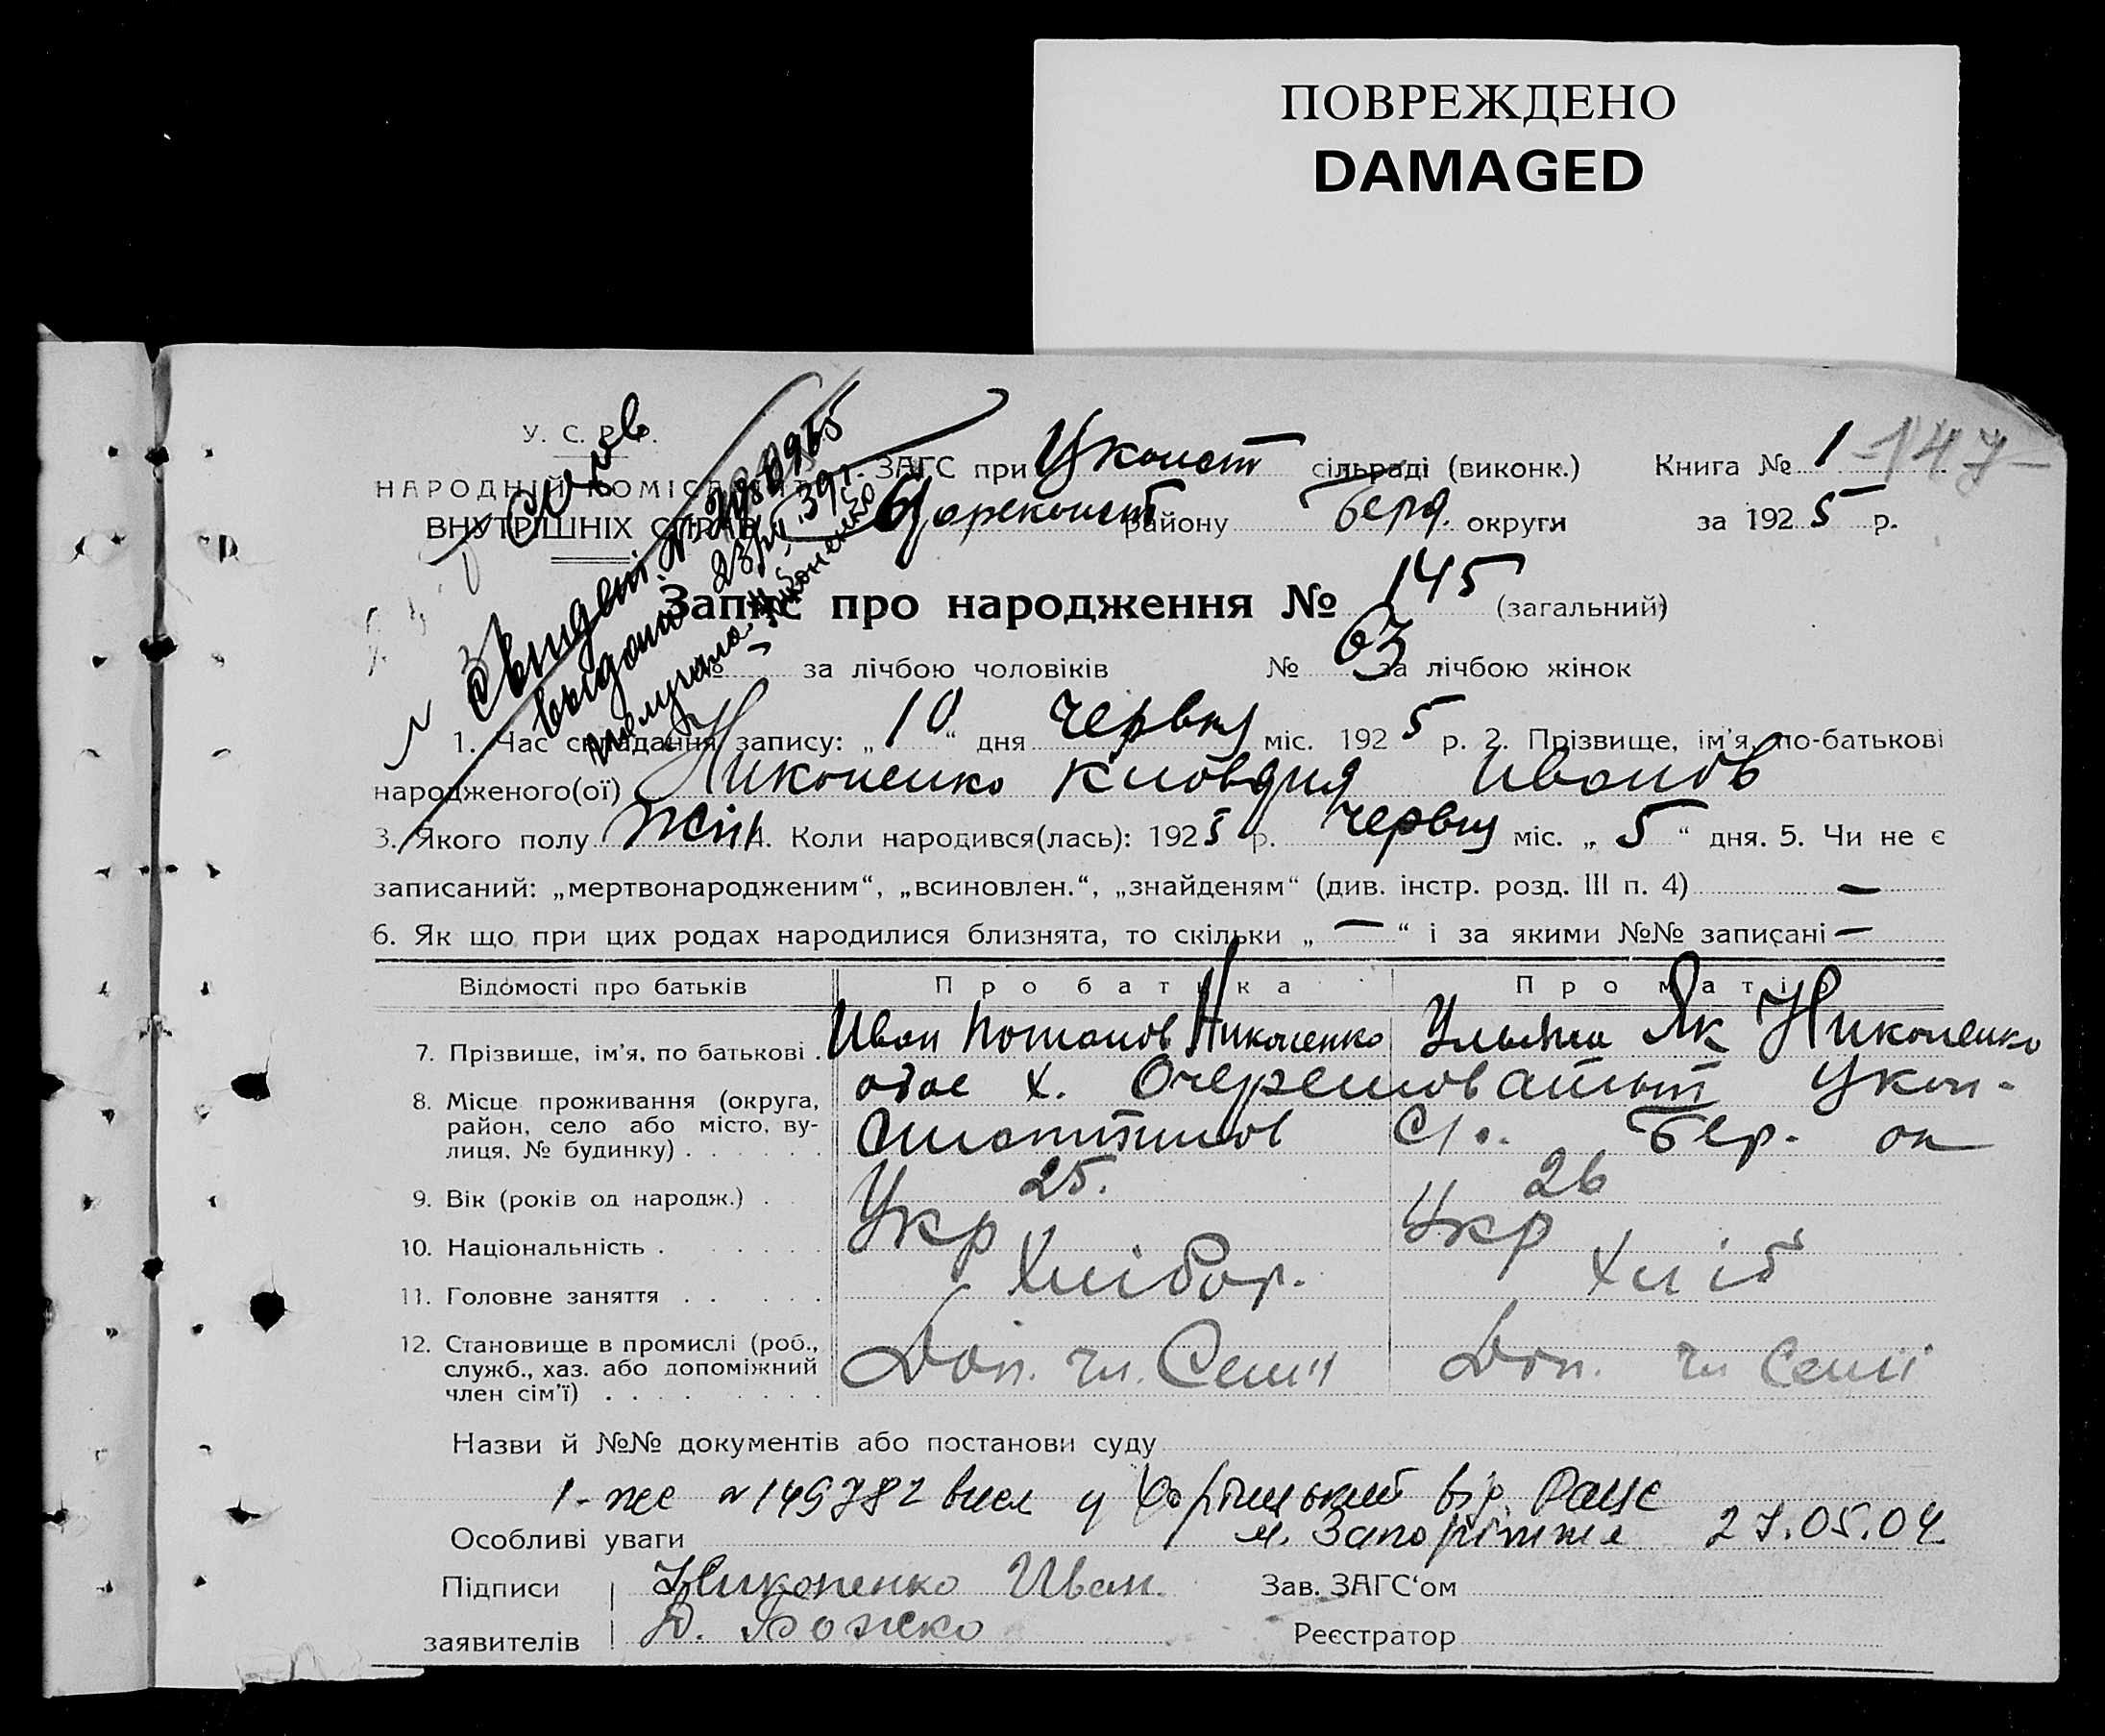 ПОВРЕЖДЕНО
DAMAGED
У. С. Р. Р.
НАРОДНІЙ КОМІСАРІЯТ
ВНУТРІШНІХ СПРАВ
ЗАГС при Цконст сільраді (виконк.) Книга № 1 -147-
району Берд. округи за 1925 р.
Запис про народження № 145 (загальний)
№ за лічбою чоловіків № 63 за лічбою жінок
1. Час складання запису: „10“ дня червня міс. 1925 р. 2. Прізвище, ім'я, по-батькові
народженого(ої) Никоненко Кловдия Иванов
3. Якого полу жін 4. Коли народився(лась): 1925 р. червня міс. „5“ дня. 5. Чи не є
записаний: „мертвонародженим“, „всиновлен.“, „знайденям“ (див. інстр. розд. III п. 4) —
6. Як що при цих родах народилися близнята, то скільки „—“ і за якими №№ записані —
Відомості про батьків Про батька Про матір
7. Прізвище, ім'я, по батькові . Иван Потапов Никоненко Ульяна Як Никоненко
8. Місце проживання (округа,
район, село або місто, ву-
лиця, № будинку) . . . . . . обое х. Бер. ок
9. Вік (років од народж.) . 25. 26
10. Національність . . . . . . Укр Укр
11. Головне заняття . . . . . Хлібор. Хліб
12. Становище в промислі (роб.,
служб., хаз. або допоміжний
член сім'ї) . . . . . . . . Доп. чл. Семії Доп. чл Семії
Назви й №№ документів або постанови суду
1-же № 149782 вид у Хортицький від. РАЦС
Особливі уваги м. Запоріжжя 27.05.04
Підписи Никоненко Иван. Зав. ЗАГС‘ом
заявителів Д. Божко Реєстратор
Свидет. №
выдано 23/IV.39 г.
получила Никоненко